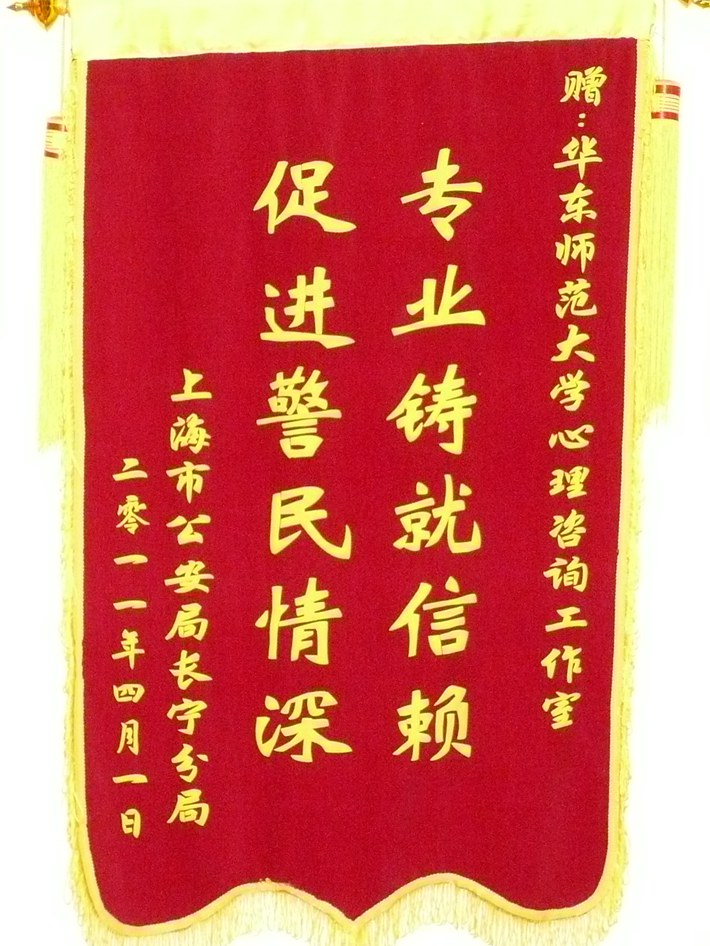 赠:华东师范大学心理咨询工作室
专业铸就信赖
促进警民情深
上海市公安局长宁分局
二零一一年四月一日